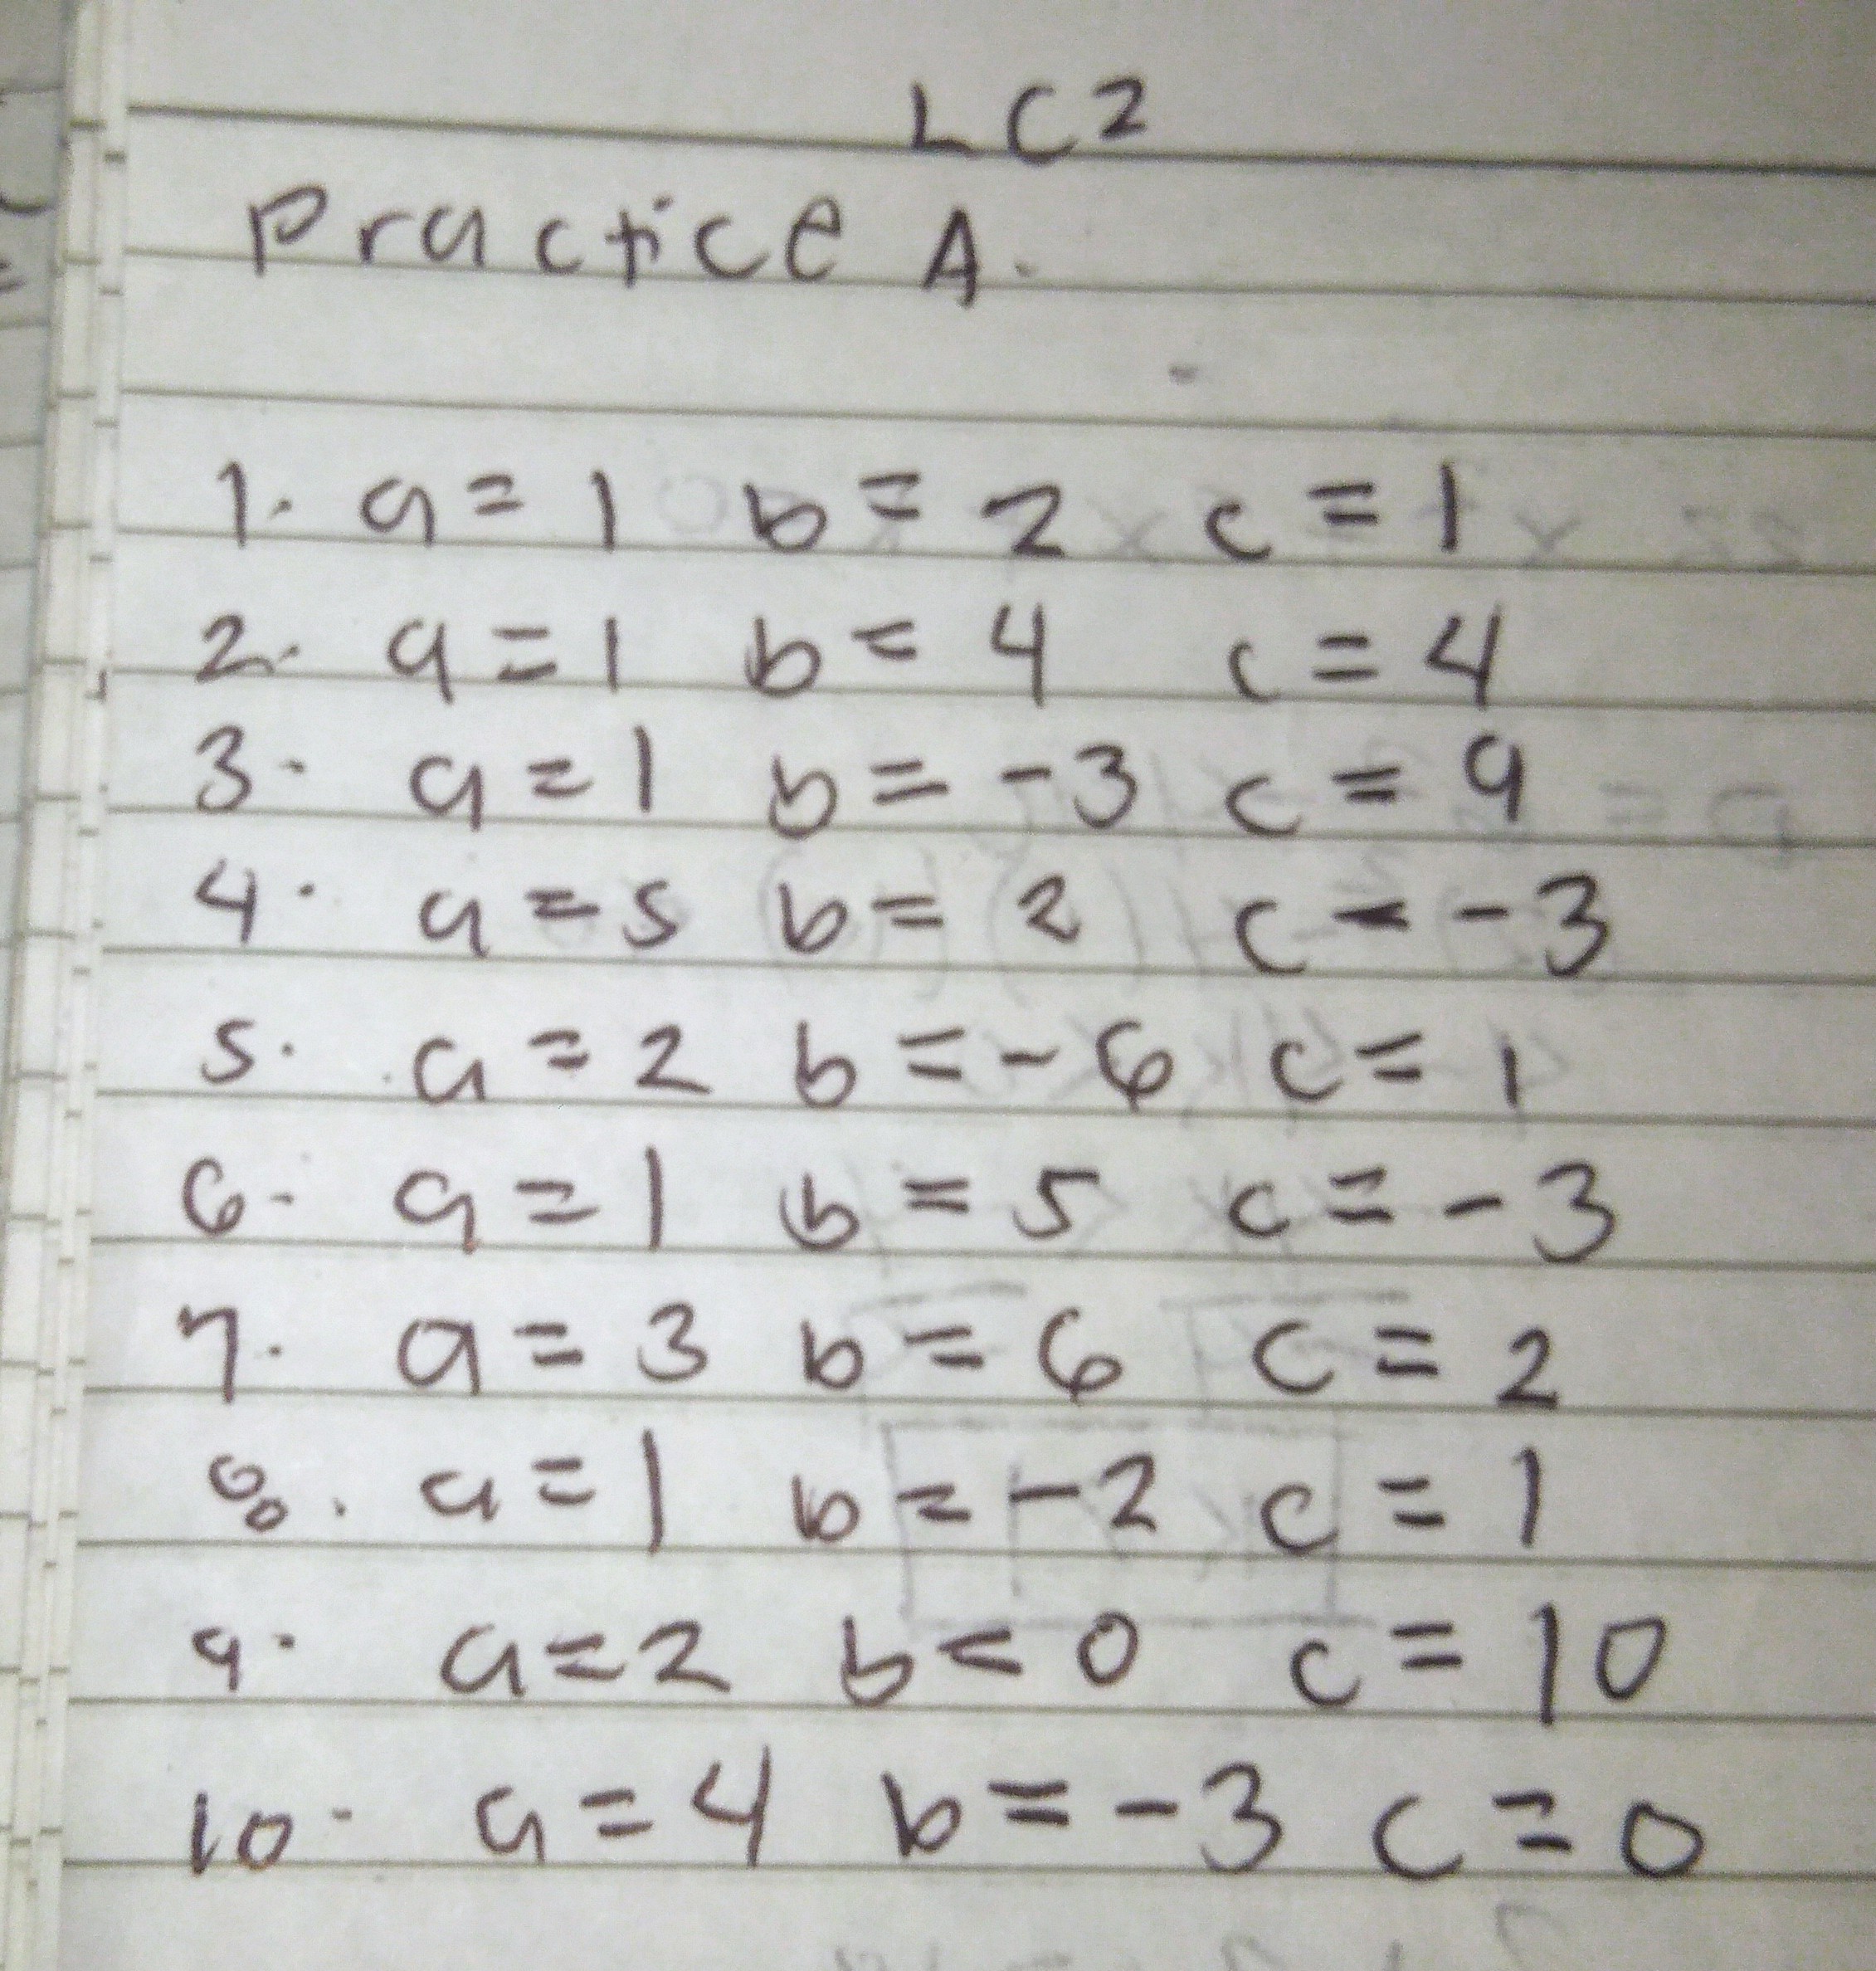 LC2
Practice A.
1. a = 1 b = 2 c = 1
2. a = 1 b = 4 c = 4
3. a = 1 b = -3 c = 9
4. a = 5 b = 2 c = -3
5. a = 2 b = -6 c = 1
6. a = 1 b = 5 c = -3
7. a = 3 b = 6 c = 2
8. a = 1 b = -2 c = 1
9. a = 2 b = 0 c = 10
10. a = 4 b = -3 c = 0